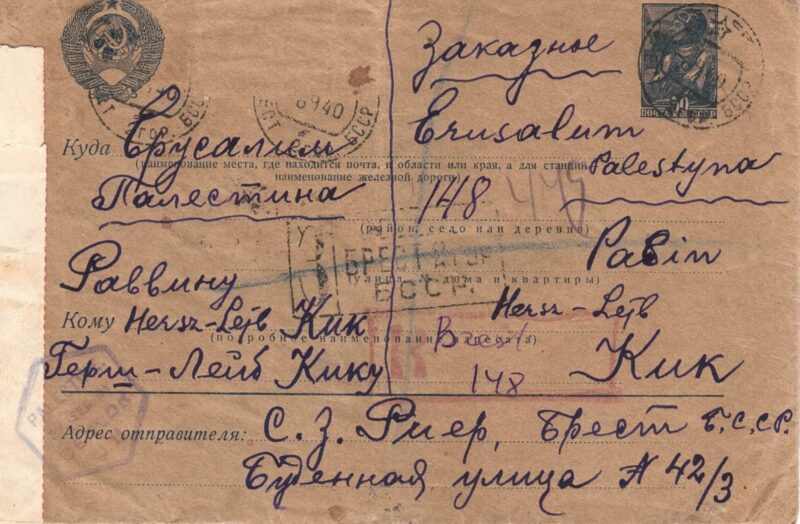 Заказное
30
ПОЧТА СССР
БССР
8 9 40
БССР
БССР
Куда Ерусалим
Erusalum
(наименование места, где находится почта, и области или края, а для станций
наименование железной дороги)
Palestyna
Палестина
148
(район, село или деревня)
БРЕСТ
БССР.
Раввину
Pabin
(улица, № дома и квартиры)
Кому Hersz-Lejb Кик
Hersz-Lejb
(подробное наименование адресата)
Brest
148
Герш-Лейб Кику
Кик
Адрес отправителя: С. З. Риер, Брест Б.С.СР.
Буденная улица № 42/3